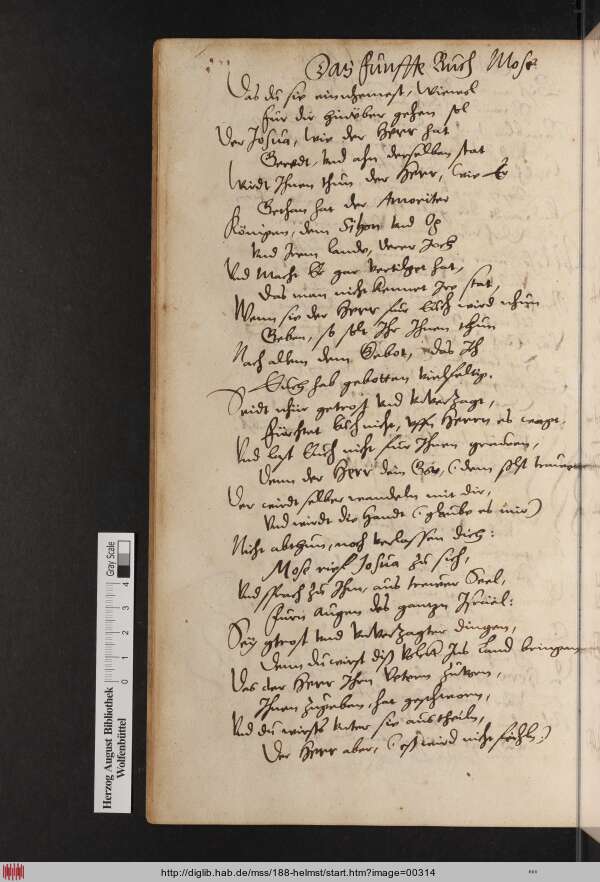 Das fünffte Buch Mose
Das du sie einnhemest, Wiewol
für dir hinüber gehen sol
Der Josua, wie der Herr hat
Geredt, Und ahn derselben stat
Wirdt Ihnen thun der Herr, wie Er
Gethan hat der Amoriter
Königen, dem Sihon und Og
Und Irem lande, derer Joch
Und Macht Er gar vertilget hat,
Das man nicht kennet Ire stat,
Wenn sie der Herr für Euch wird nhun
Geben, so solt Ihr Ihnen thun
Nach allem dem Gebot, das Ich
Euch hab gebotten vielfeltig.
Seidt nhur getrost und unverzagt,
fürchtet Euch nicht, uffn Herrn es wagt,
Und last Euch nicht für Ihnen grawen,
Denn der Herr dein Gott, (dem solst
Der wirdt selber wandeln mit dir,
Und wirdt die Handt (glaube es mir)
Nicht abthun, noch verlassen dich:
Mose rieff Josua zu sich,
Und sprach zu Ihm, aus trewer Seel,
fürn Augen des gantzn Israel:
Sey getrost und unverzagter dingen,
Denn du wirst diß Volck Ins Land bringen
Das der Herr Ihrn Vetern
Ihnen zugeben, hat geschworn,
Und du wirsts unter sie austheiln,
Der Herr aber, (es wird nicht feihln)
Herzog August Bibliothek
Wolfenbüttel
Gray Scale
0 1 2 3 4
http://diglib.hab.de/mss/188-helmst/start.htm?image=00314